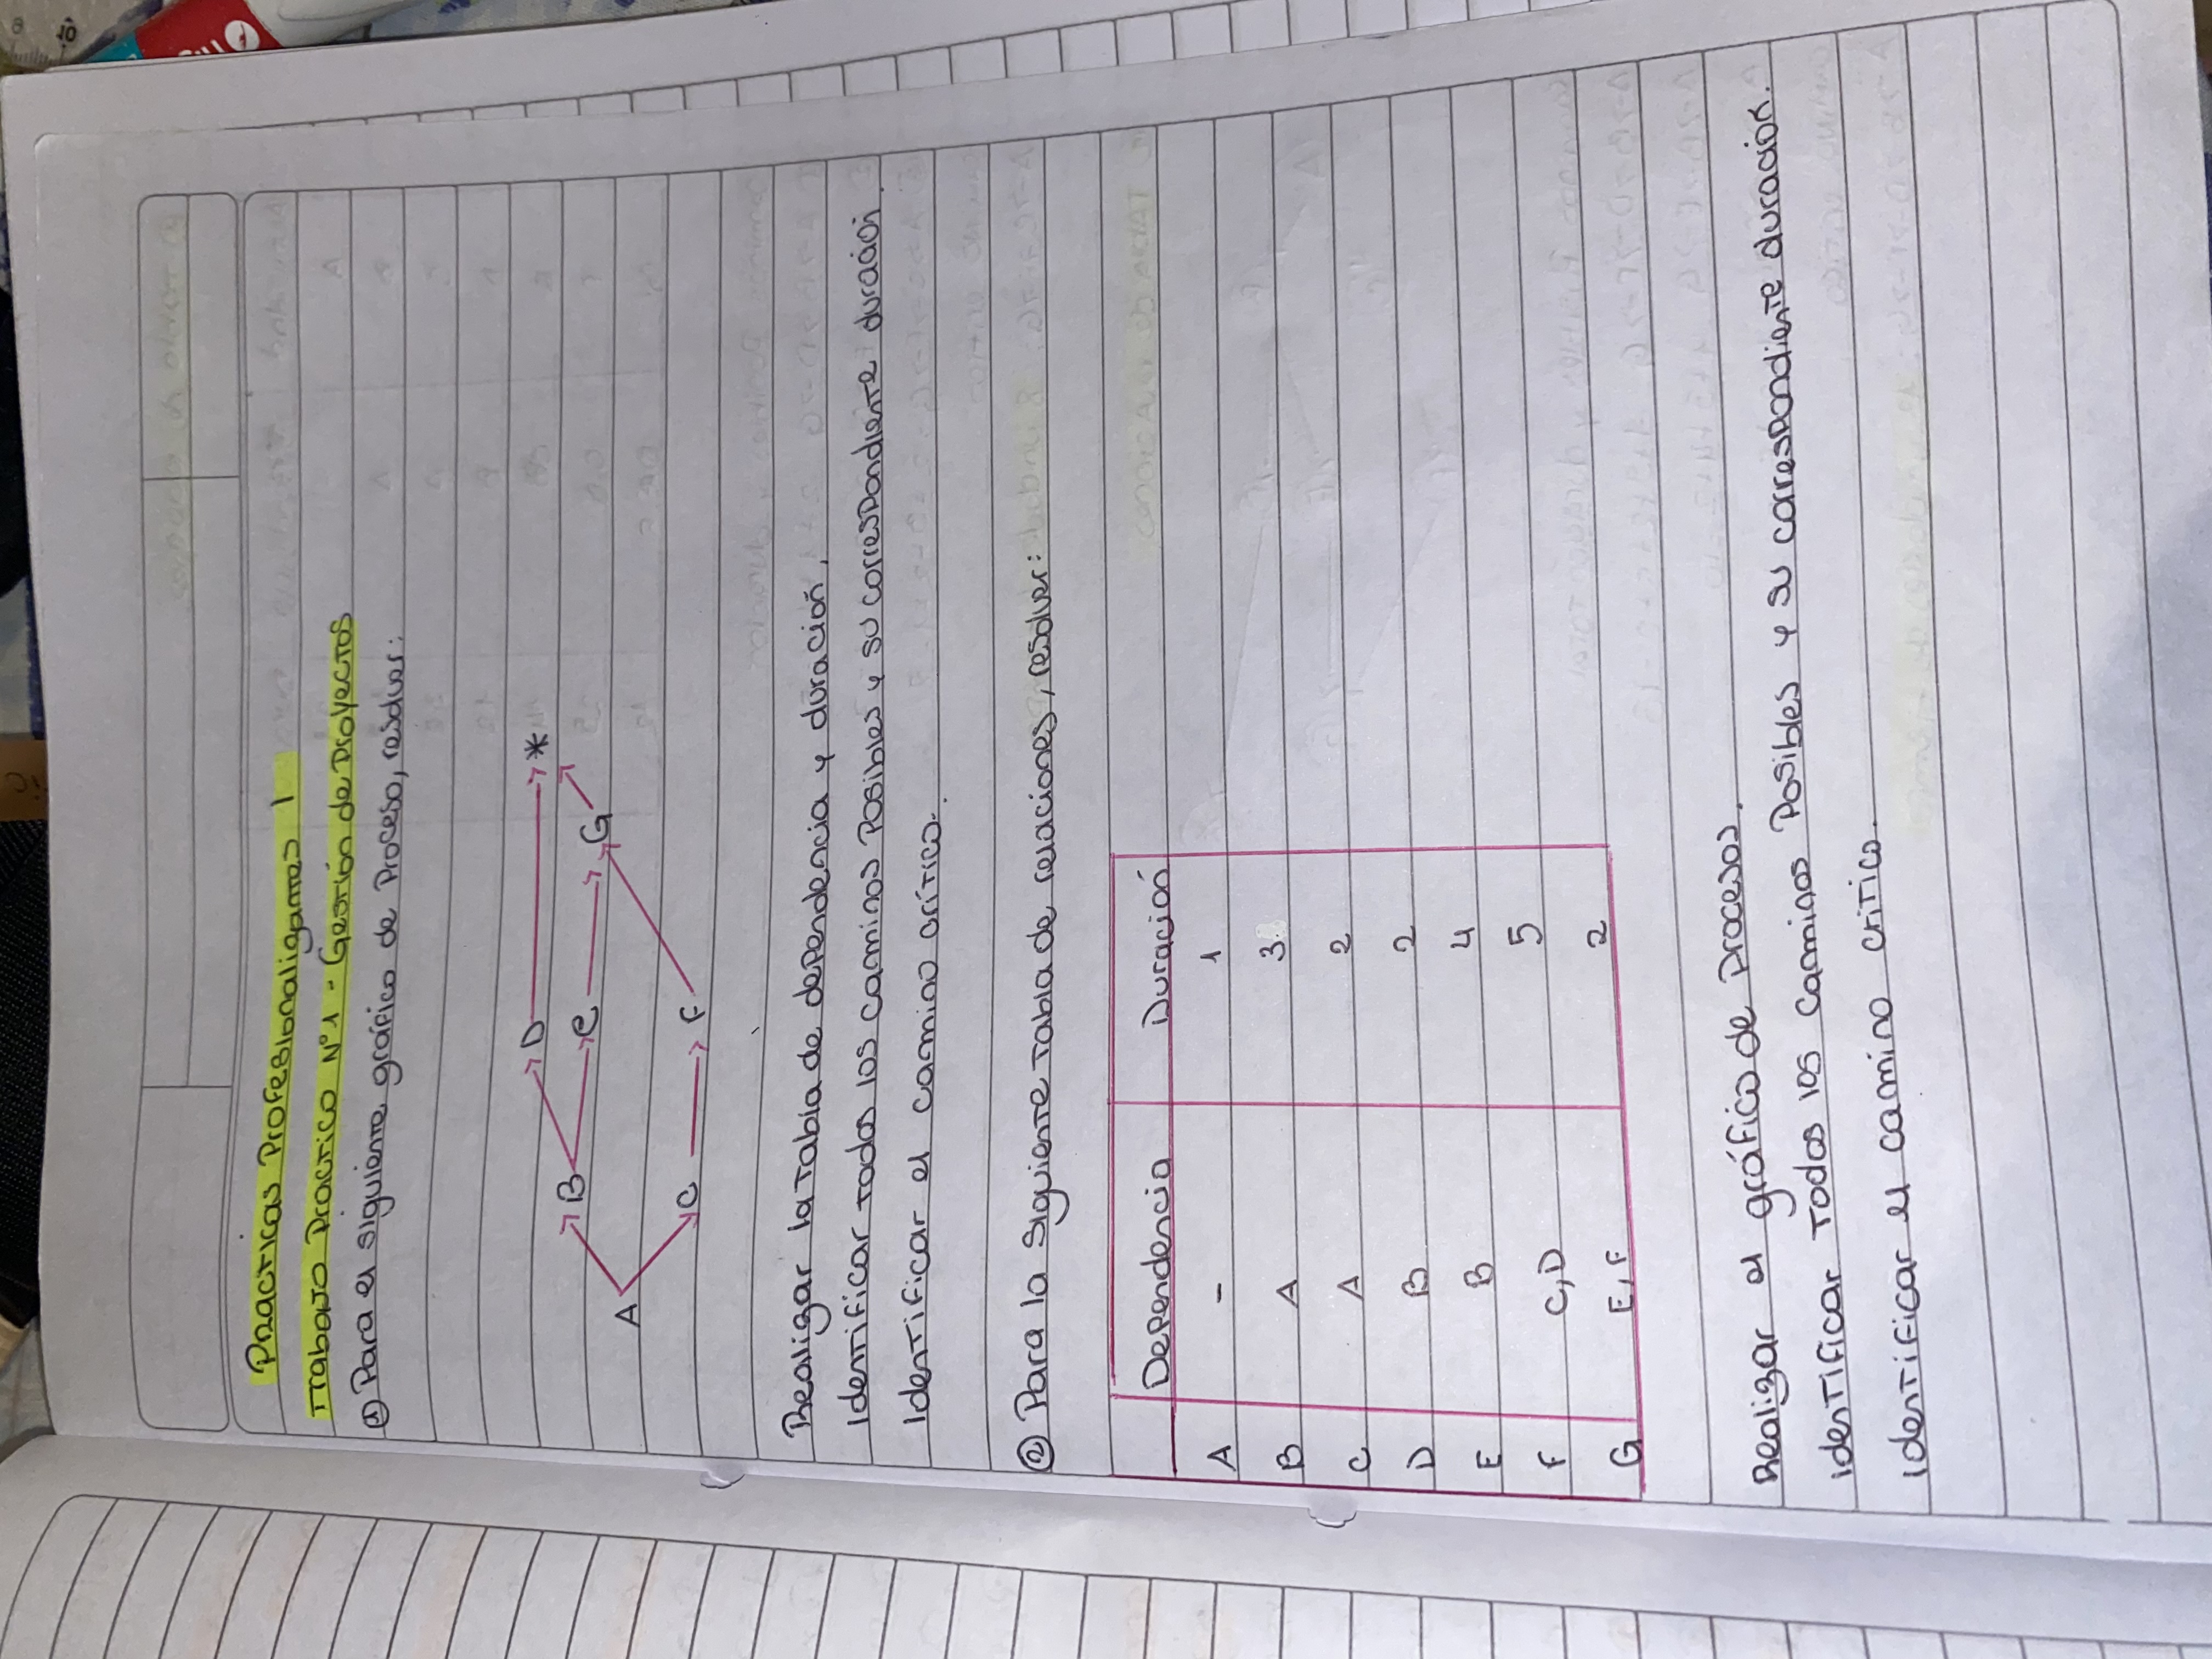 Practicas Profesionaligantes 1
Trabajo Practico N°1 - Gestión de Proyectos
① Para el siguiente gráfico de Proceso, resolver:
D → *
B → e → G
A
C → F
Realigar la tabla de dependencia y duración.
Identificar todos los caminos Posibles y su correspondiente duración.
Identificar el camino crítico.
② Para la siguiente tabla de relaciones, resolver:
Dependencia Duración
A - 1
B A 3
C A 2
D B 2
E B 4
F C,D 5
G E,F 2
Realizar el gráfico de Procesos.
identificar todos los caminos Posibles y su correspondiente duración.
identificar el camino critico.